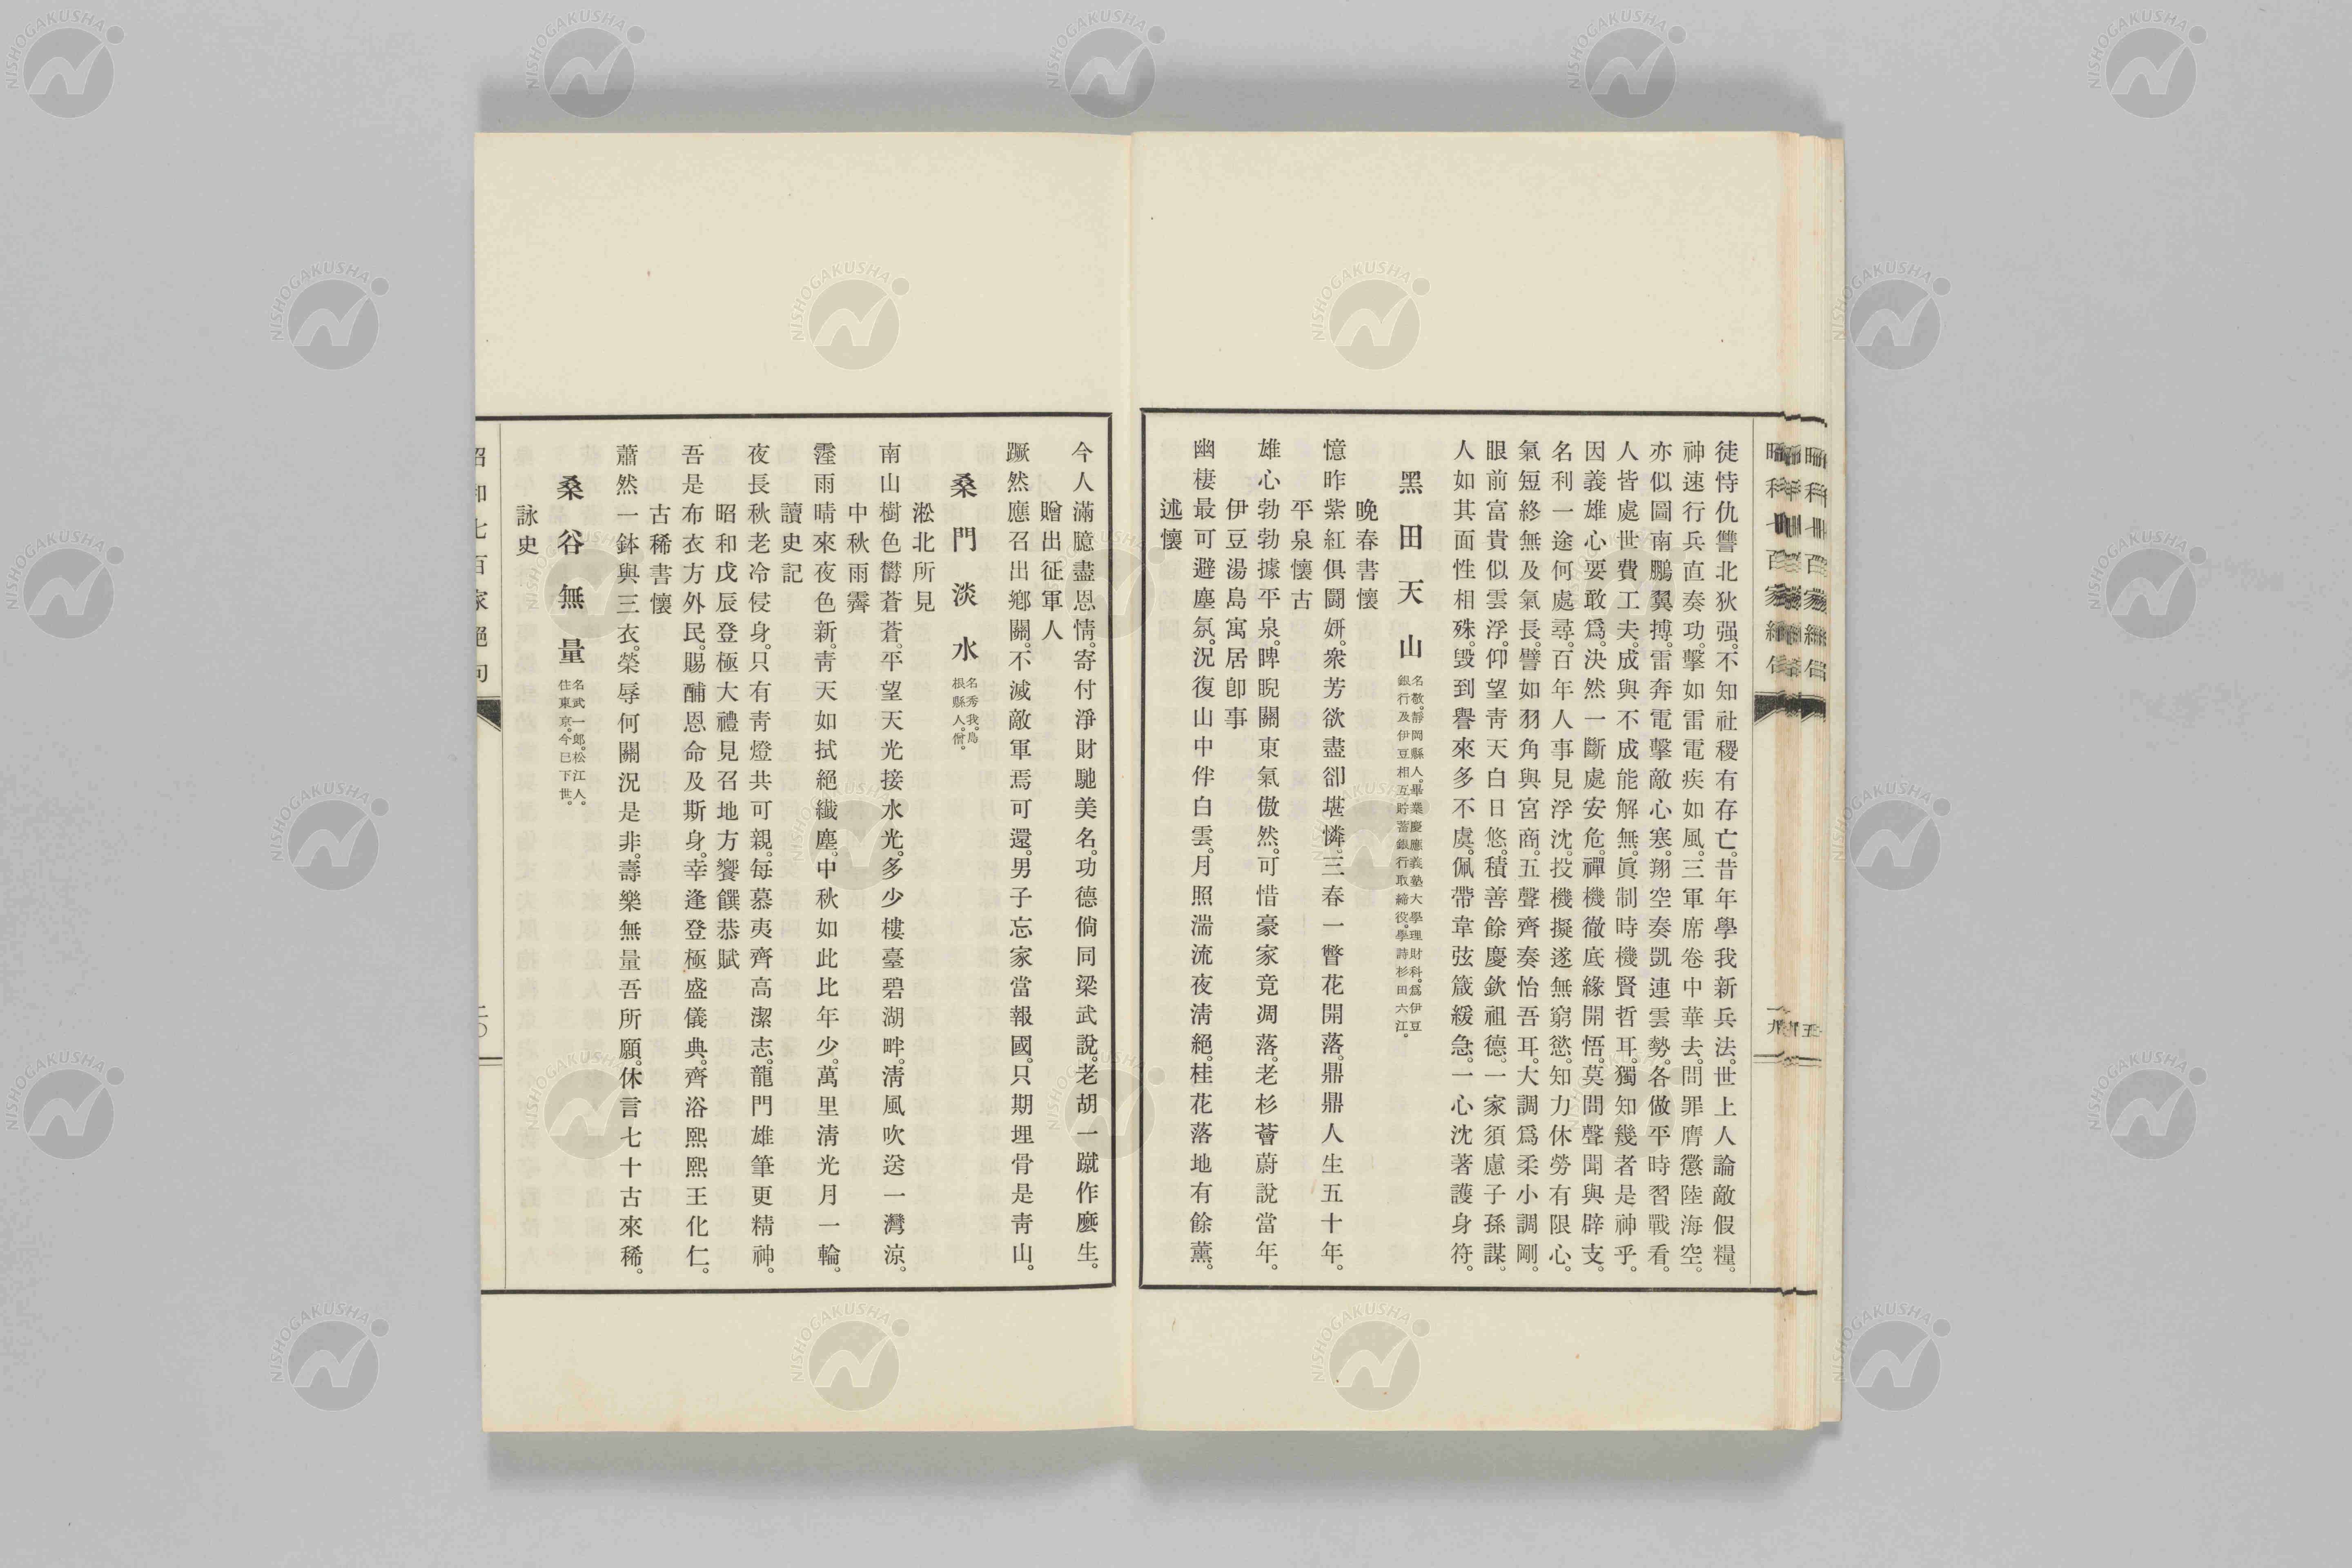 徒恃仇讐北狄强。不知社稷有存亡。昔年學我新兵法。世上人論敵假糧。
神速行兵直奏功。擊如雷電疾如風。三軍席卷中華去。問罪膺懲陸海空。
亦似圖南鵬翼搏。雷奔電擊敵心寒。翔空奏凱連雲勢。各做平時習戰看。
人皆處世費工夫。成與不成能解無。眞制時機賢哲耳。獨知幾者是神乎。
因義雄心要敢爲。決然一斷處安危。禪機徹底緣開悟。莫問聲聞與辟支。
名利一途何處尋。百年人事見浮沈。投機擬遂無窮慾。知力休勞有限心。
氣短終無及氣長。譬如羽角與宮商。五聲齊奏怡吾耳。大調爲柔小調剛。
眼前富貴似雲浮。仰望靑天白日悠。積善餘慶欽祖德。一家須慮子孫謀。
人如其面性相殊。毀到譽來多不虞。佩帶韋弦箴緩急。一心沈著護身符。
黑田天山 名敬。靜岡縣人。畢業慶應義塾大學理財科。爲伊豆
銀行及伊豆相互貯蓄銀行取締役。學詩杉田六江。
晩春書懷
憶昨紫紅俱鬪妍。衆芳欲盡卻堪憐。三春一瞥花開落。鼎鼎人生五十年。
平泉懷古
雄心勃勃據平泉。睥睨關東氣傲然。可惜豪家竟凋落。老杉薈蔚說當年。
伊豆湯島寓居卽事
幽棲最可避塵氛。況復山中伴白雲。月照湍流夜淸絕。桂花落地有餘薰。
述懷
昭和七百家絕句
一九
今人滿臆盡恩情。寄付淨財馳美名。功德倘同梁武說。老胡一蹴作麽生。
贈出征軍人
蹶然應召出鄕關。不滅敵軍焉可還。男子忘家當報國。只期埋骨是靑山。
桑門淡水 名秀我。島
根縣人。僧。
淞北所見
南山樹色欝蒼蒼。平望天光接水光。多少樓臺碧湖畔。淸風吹送一灣涼。
中秋雨霽
霪雨晴來夜色新。靑天如拭絕纖塵。中秋如此比年少。萬里淸光月一輪。
讀史記
夜長秋老冷侵身。只有靑燈共可親。每慕夷齊高潔志。龍門雄筆更精神。
昭和戊辰登極大禮見召地方饗饌恭賦
吾是布衣方外民。賜酺恩命及斯身。幸逢登極盛儀典。齊浴熙熙王化仁。
古稀書懷
蕭然一鉢與三衣。榮辱何關況是非。壽樂無量吾所願。休言七十古來稀。
桑谷無量 名武一郎。松江人。
住東京。今已下世。
詠史
昭和七百家絕句
二〇